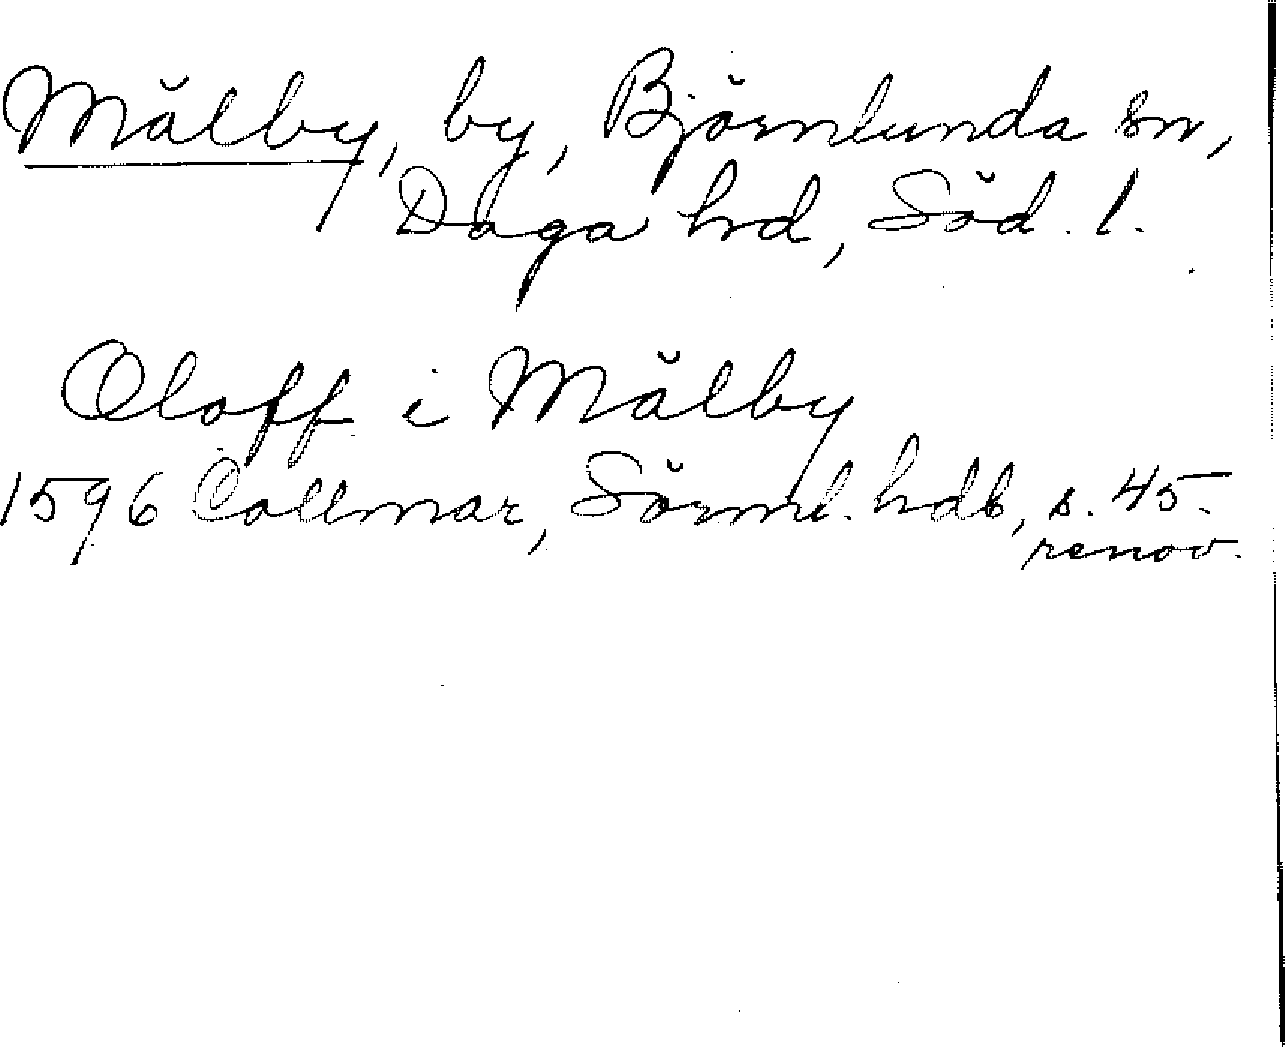 Mälby, by, Björnlunda sn,
Daga hd, Söd. l.
Oloff i Mälby
1596 Collmar, Sörml. hdb, s. 45.
renov.